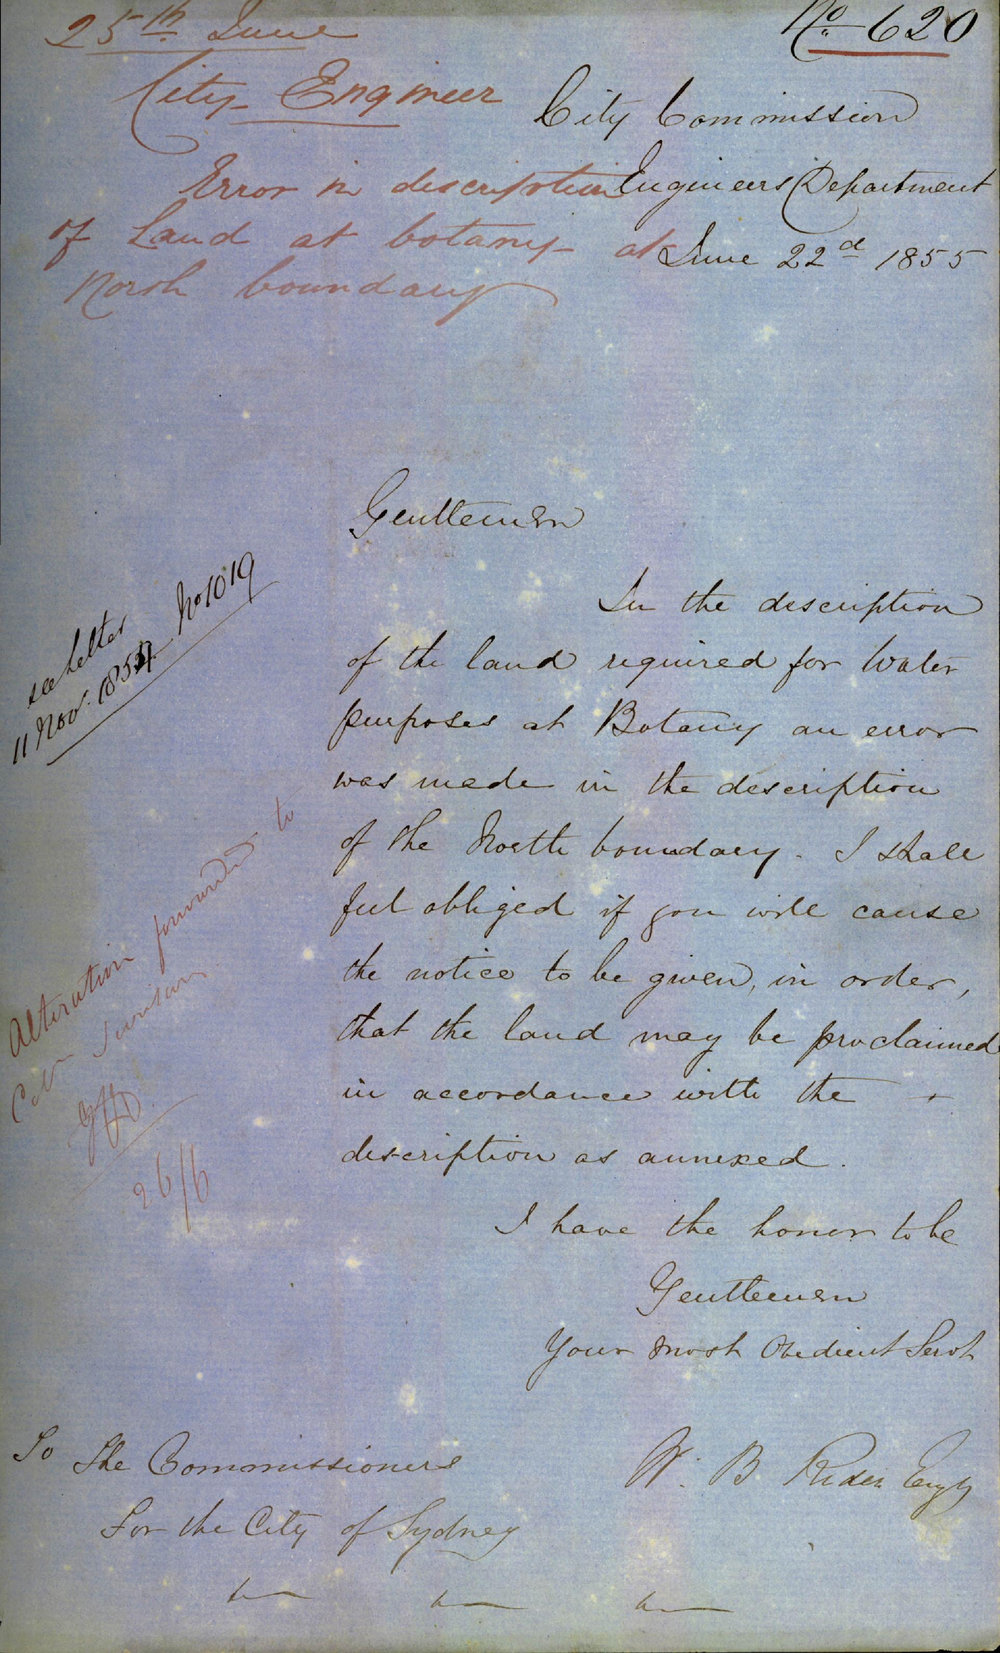 25th June
No. 620
City Engineer
City Commission
Error in description
Engineers Department
of Land at botany at
June 22d 1855
North boundary
Gentlemen
In the description
of the land required for Water
purposes at Botany an error
was made in the description
of the North boundary. I shall
feel obliged if you will cause
the notice to be given, in order,
that the land may be proclaimed
in accordance with the
description as annexed.
I have the honor to be
Gentlemen
Your most Obedient Servt
W. B Rider Engr
To The Commissioners
For the City of Sydney
see letter
11 Nov. 1854 No 1019
Alteration forwarded to
26/6